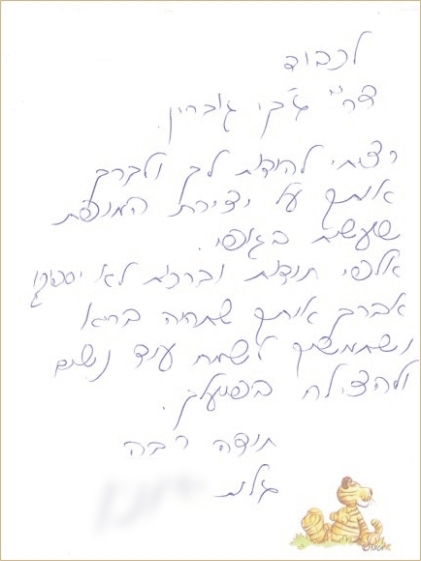 לכבוד
דר" ג'קי גוברין.
רציתי להודות לך ולברך
אותך על יצירת המופת
שעשית בגופי.
אלפי תודות וברכות לא יספיקו
אברך אותך שתהיה בריא
ושתמשיך לשמח עוד נשים
ולהצליח בפועלך.
תודה רבה
גלית